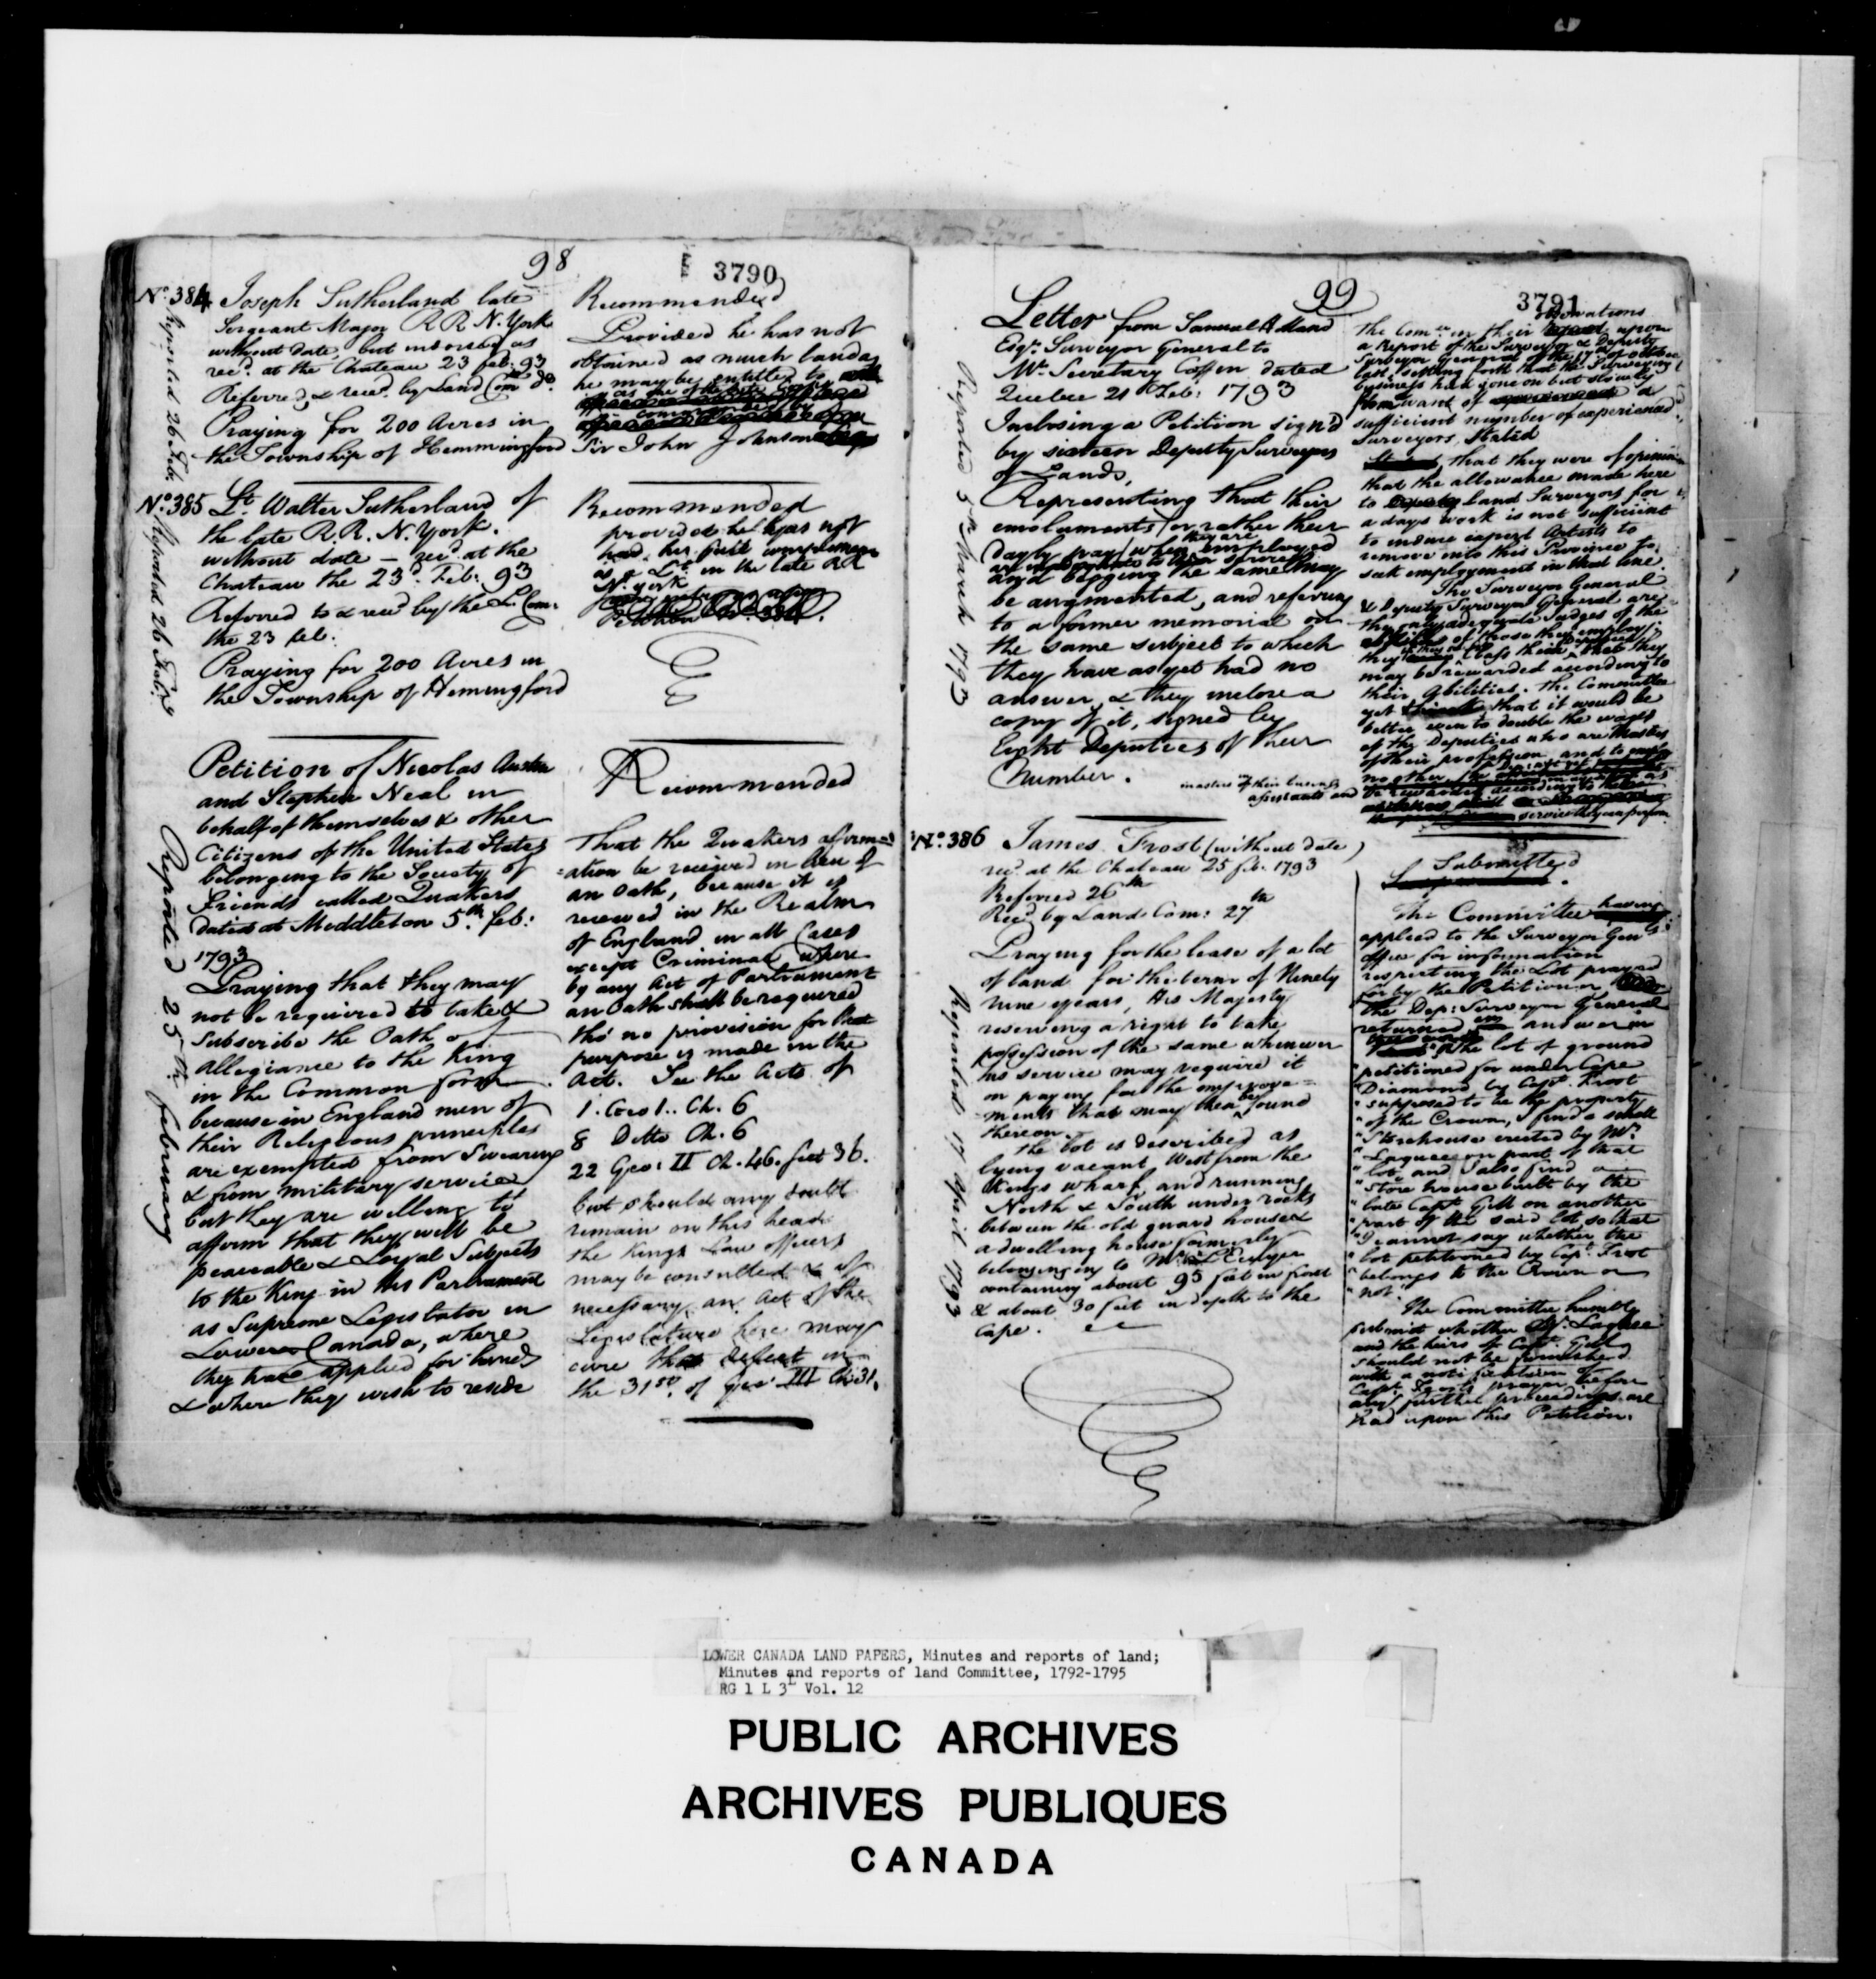 98
3790
No. 384
Joseph Sutherland late
Sergeant Major RR N. York
without date, but indorsed as
rec'd. at the Chateau 23 feb: 93
Referred & rec'd. by Land Com do.
Praying for 200 Acres in
the Township of Hemmingford
Reported 26 Feb.
Recommended
Provided he has not
obtained as much land as
he may be entitled to
Sir John Johnson
No. 385 Lt. Walter Sutherland of
the late R.R. N. York.
without date — rec'd at the
Chateau the 23d. Feb: 93
Referred to & rec'd by the L. Com:
the 23 feb:
Praying for 200 Acres in
the Township of Hemingford
Reported 26 Feb: 93
Recommended
provided he has not
had his full complement
as a Lt. in the late RR
N. York
Petition of Nicolas Austin
and Stephen Neal in
behalf of themselves & other
Citizens of the United States
belonging to the Society of
Friends called Quakers
dated at Meddleton 5th. feb:
1793
Praying that they may
not be required to take &
Subscribe the Oath of
allegiance to the King
in the Common form
because in England men of
their Religious principles
are exempted from Swearing
& from military service
but they are willing to
affirm that they will be
peaceable & Loyal Subjects
to the King in his Parliament
as Supreme Legislator in
Lower Canada, where
they have applied for lands
& where they wish to reside
Reported 25th. february
Recommended
That the Quakers afirm=
=ation be received in lieu of
an Oath, because it is
received in the Realm
of England in all Cases
except Criminal where
by any Act of Parliament
an Oath shall be required
tho' no provision for that
purpose is made in the
Act. See the Acts of
1. Geo 1.. Ch. 6
8 Ditto Ch. 6
22 Geo: II Ch. 46. Sect 36.
but should any doubt
remain on this head
the Kings Law officers
may be consulted & if
necessary an Act of the
Legislature here may
cure that defect in
the 31st. of Geo: III Ch: 31.
99
3791
Letter from Samuel Holland
Esqr. Surveyor General to
Mr. Secretary Coffin dated
Quebec 21st Feb: 1793
Inclosing a Petition sign'd
by sixteen Deputy Surveyors
of Lands,
Representing that their
emoluments / or rather their
dayly pay / when they are employed
and begging the same may
be augmented, and refering
to a former memorial on
the same subject to which
they have as yet had no
answer, & they inclose a
copy of it, signed by
Eight Deputies of their
Number.
Reported 5th March 1793
observations
The Comee. in their upon
a Report of the Surveyor & Deputy
Surveyor General of the 17th of october
last, setting forth that the Surveying
business had gone on but slowly
from want of a
sufficient number of experienced
Surveyors, Stated
that they were of opinion
that the allowance made here
to Land Surveyors for
a days work is not sufficient
to induce expert Artists to
remove into this Province to
seek employment in that line.
The Surveyor General
& Deputy Surveyor General are
the only adequate Judges of the
abilities of those they employ;
they class them that they
may be rewarded according to
their abilities. The Committee
yet that it would be
better even to double the wages
of the Deputies who are Masters
of their profession and to employ
no other
masters in their business
assistants and be rewarded according to the
service they can perform
No. 386 James Frost (without date)
rec'd. at the Chateau 25 feb. 1793
Referred 26th
Rec'd by Land Com: 27th
Praying for the lease of a lot
of land for the term of Ninety
nine years, His Majesty
reserving a right to take
possession of the same whenever
his service may require it
on paying for the improve=
ments that may then be found
thereon.
The lot is described as
lying vacant West from the
Kings wharf, and running
North & South under rocks
between the old guard house &
a dwelling house formerly
belonging to Mr.
containing about 95 feet in front
& about 30 feet in depth to the
Cape.
Reported 17 April 1793
Submitted
The Committee having
applied to the Surveyor Genls:
office for information
respecting the Lot prayed
for by the Petitioner
the Dep: Surveyor General
returned answer in
"The lot of ground
"petitioned for under Cape
"Diamond by Capt. Frost
"supposed to be the property
"of the Crown, I find a small
"Storehouse erected by Mr.
"Laquee on part of that
"lot and I also find a
"Store house built by the
"late Capt. Gill on another
"part of the said lot so that
"I cannot say whether the
"lot petitioned by Capt. Frost
"belongs to the Crown or
"not."
The Committee humbly
submit whether Mr. Laquee
and the heirs of Capt. Gill
should not be furnished
with a notification of
Capt: Frosts prayer before
any further proceedings are
had upon this Petition.
LOWER CANADA LAND PAPERS, Minutes and reports of land;
Minutes and reports of land Committee, 1792-1795
RG 1 L 3L Vol. 12
PUBLIC ARCHIVES
ARCHIVES PUBLIQUES
CANADA